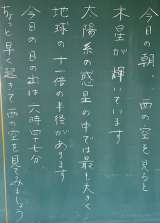 今日の朝、西の空を見ると
木星が輝いています
太陽系の惑星の中では最も大きく
地球の十一倍の半径があります
今日の日の出は六時四十七分
ちょっと早く起きて西の空を見てみましょう